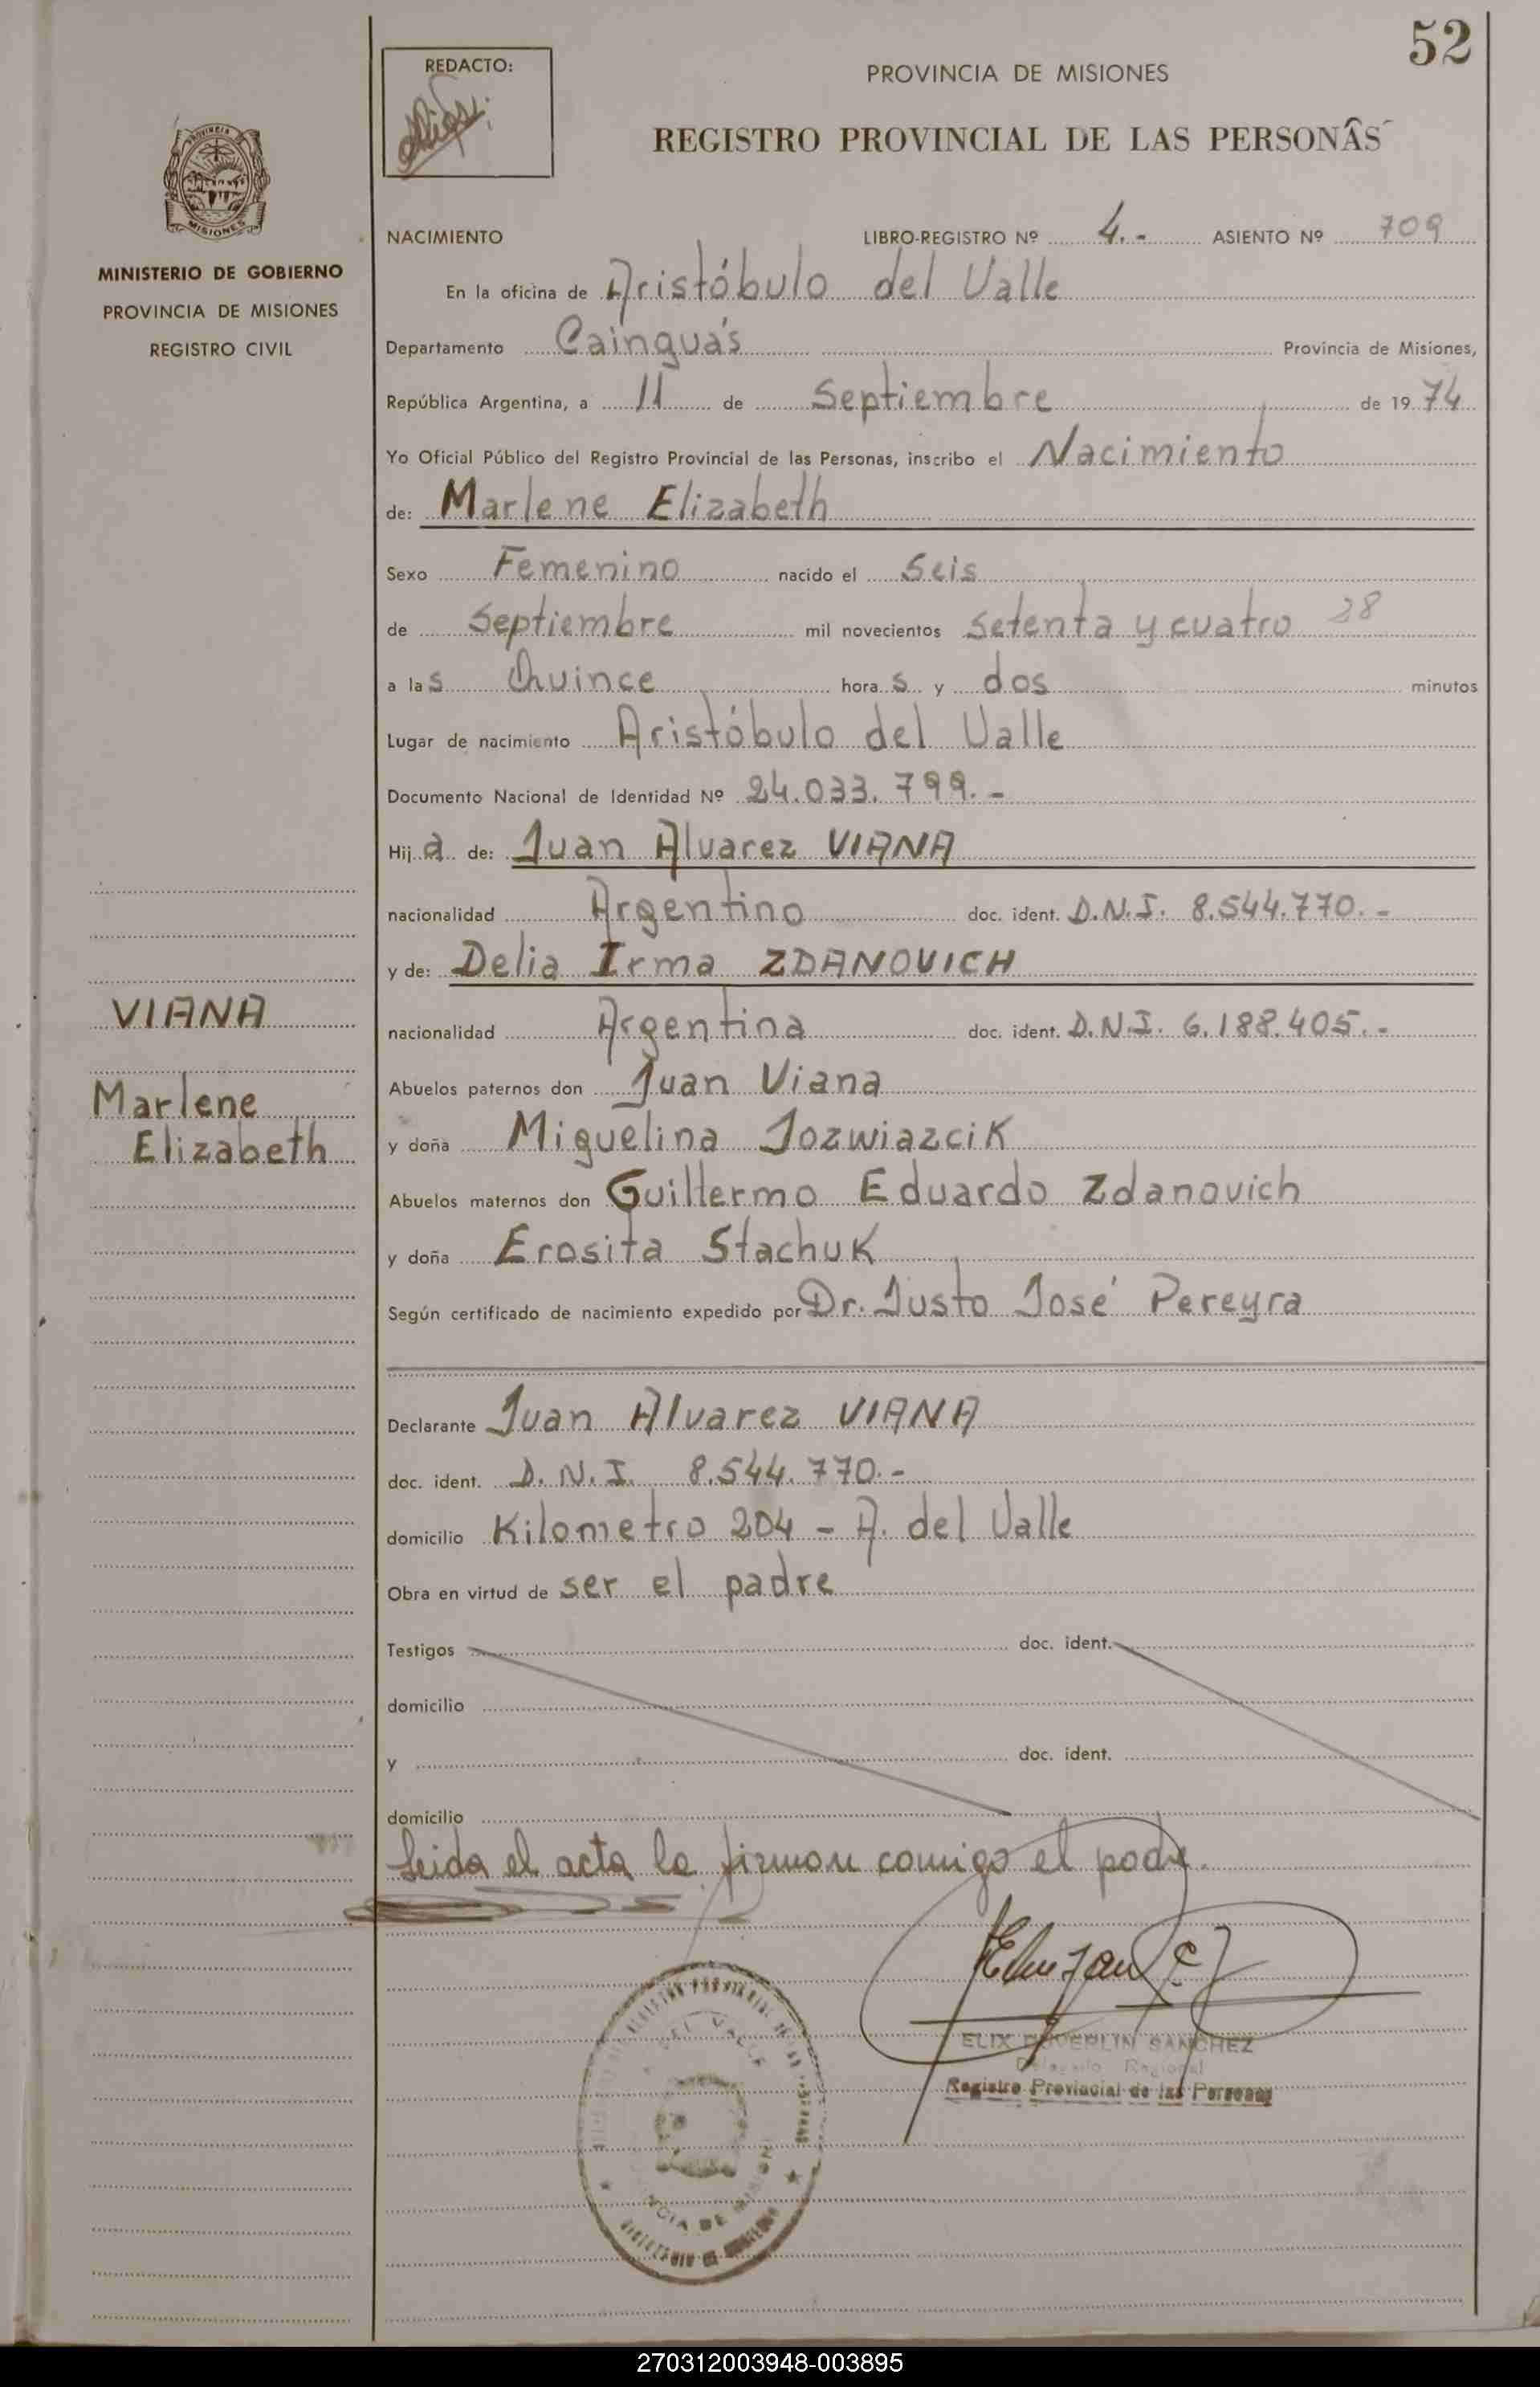 52
REDACTO:
PROVINCIA DE MISIONES
REGISTRO PROVINCIAL DE LAS PERSONAS
PROVINCIA
MISIONES
MINISTERIO DE GOBIERNO
PROVINCIA DE MISIONES
REGISTRO CIVIL
NACIMIENTO LIBRO-REGISTRO Nº 4.- ASIENTO Nº 709
En la oficina de Aristóbulo del Valle
Departamento Cainguás Provincia de Misiones,
República Argentina, a 11 de Septiembre de 1974
Yo Oficial Público del Registro Provincial de las Personas, inscribo el Nacimiento
de: Marlene Elizabeth
Sexo Femenino nacido el Seis
de Septiembre mil novecientos setenta y cuatro 38
a las Quince horas y dos minutos
Lugar de nacimiento Aristóbulo del Valle
Documento Nacional de Identidad Nº 24.033.799.-
Hija de: Juan Alvarez VIANA
nacionalidad Argentino doc. ident. D.N.I. 8.544.770.-
y de: Delia Irma ZDANOVICH
nacionalidad Argentina doc. ident. D.N.I. 6.188.405.-
Abuelos paternos don Juan Viana
y doña Miguelina Jozwiazcik
Abuelos maternos don Guillermo Eduardo Zdanovich
y doña Erosita Stachuk
Según certificado de nacimiento expedido por Dr. Justo José Pereyra
VIANA
Marlene
Elizabeth
Declarante Juan Alvarez VIANA
doc. ident. D.N.I. 8.544.770.-
domicilio Kilometro 204 - A. del Valle
Obra en virtud de ser el padre
Testigos doc. ident.
domicilio
y doc. ident.
domicilio
Leida el acta la firman comigo el padre.
ELIX SANCHEZ
Delegado Regional
Registro Provincial de las Personas
DEL VALLE
PROVINCIA DE MISIONES
270312003948-003895